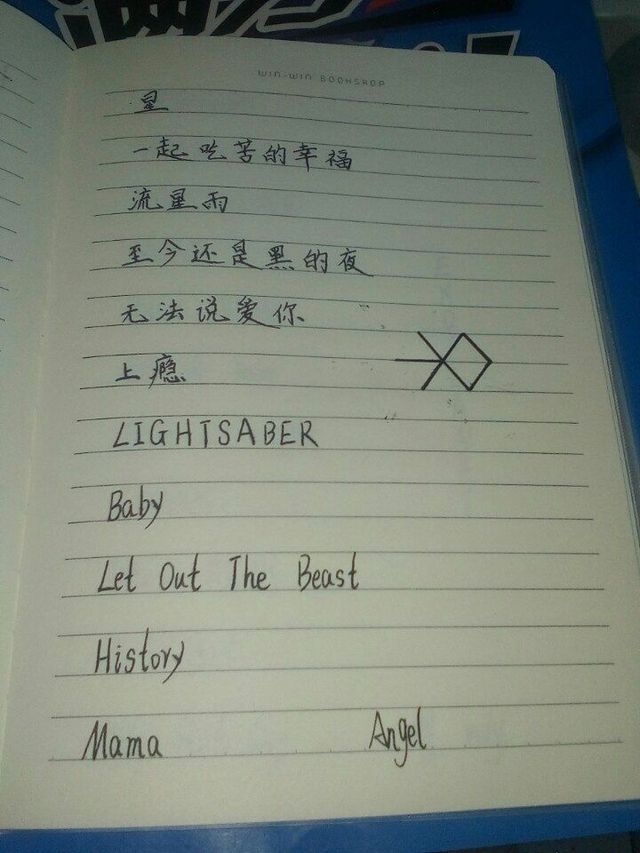 WIN-WIN BOOKSHOP
星
一起吃苦的幸福
流星雨
至今还是黑的夜
无法说爱你
上瘾
LIGHTSABER
Baby
Let Out The Beast
History
Mama Angel